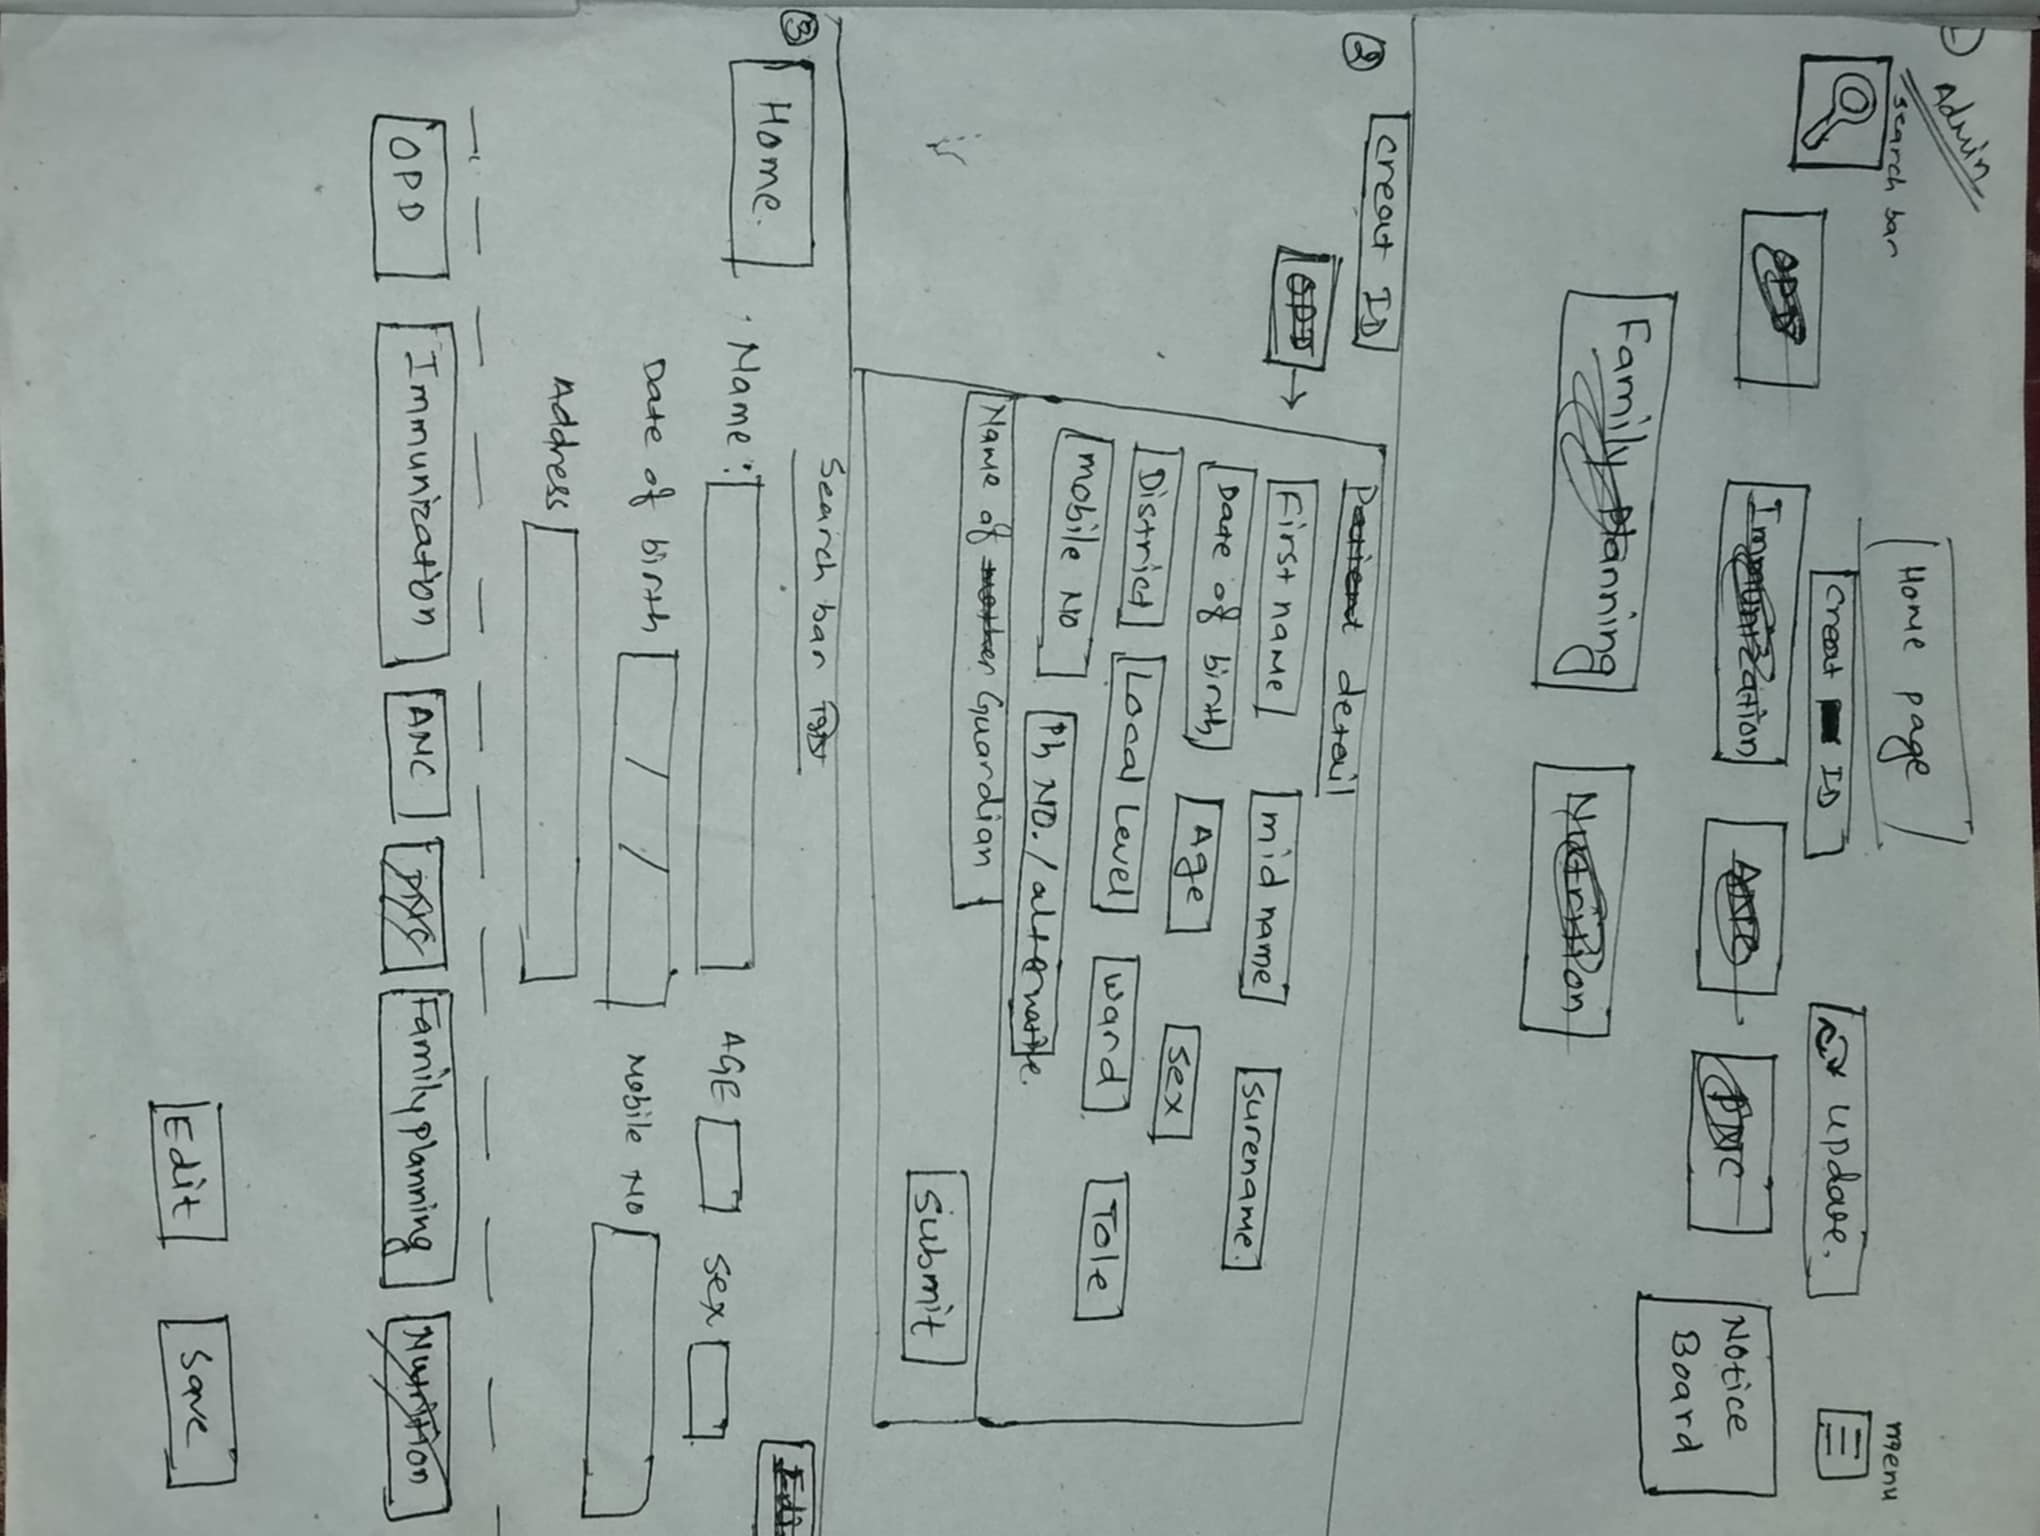 Admin
search bar
Home page
menu
Creat ID
update.
OPD
Immunization
ANC
PNC
Notice
Board
Family Planning
Nutrition
② Creat ID
Patient detail
OPD →
First name
mid name
surename.
Date of birth
Age
Sex
District
Local Level
Ward
Tole
mobile NO
Ph NO. / alternative.
Name of mother Guardian
Submit
③ Home.
Search bar
Edi
Name :
AGE
Sex
Date of birth / /
Mobile NO
Address
OPD
Immunization
ANC
PNC
Family planning
Nutrition
Edit
Save